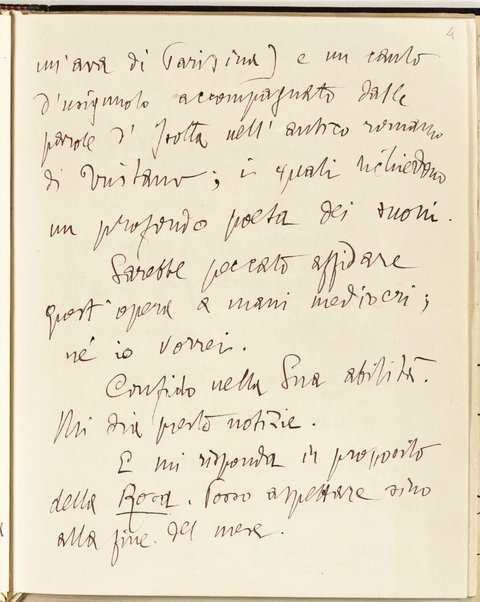 4
un'ara di Parisina) e un canto
d'usignuolo accompagnato dalle
parole d'Isotta nell'antico romanzo
di Tristano; i quali richiedono
un profondo poeta dei suoni.
Sarebbe peccato affidare
quest'opera a mani mediocri;
né io vorrei.
Confido nella Sua abilità.
Mi dia presto notizie.
E mi risponda in proposito
della Rosa. Posso aspettare sino
alla fine del mese.